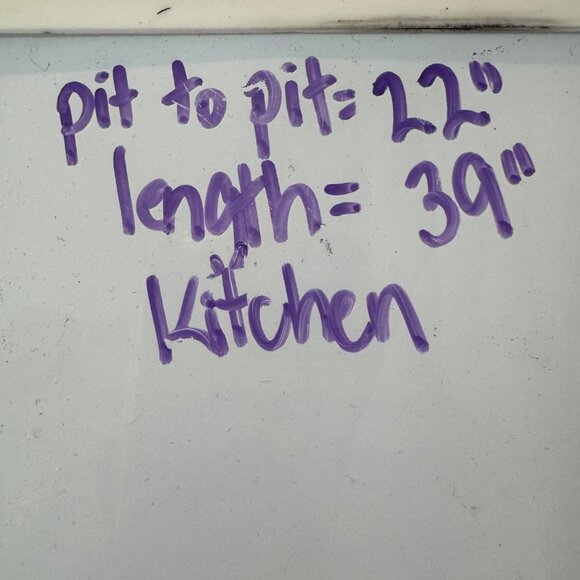 pit to pit= 22"
length= 39"
Kitchen